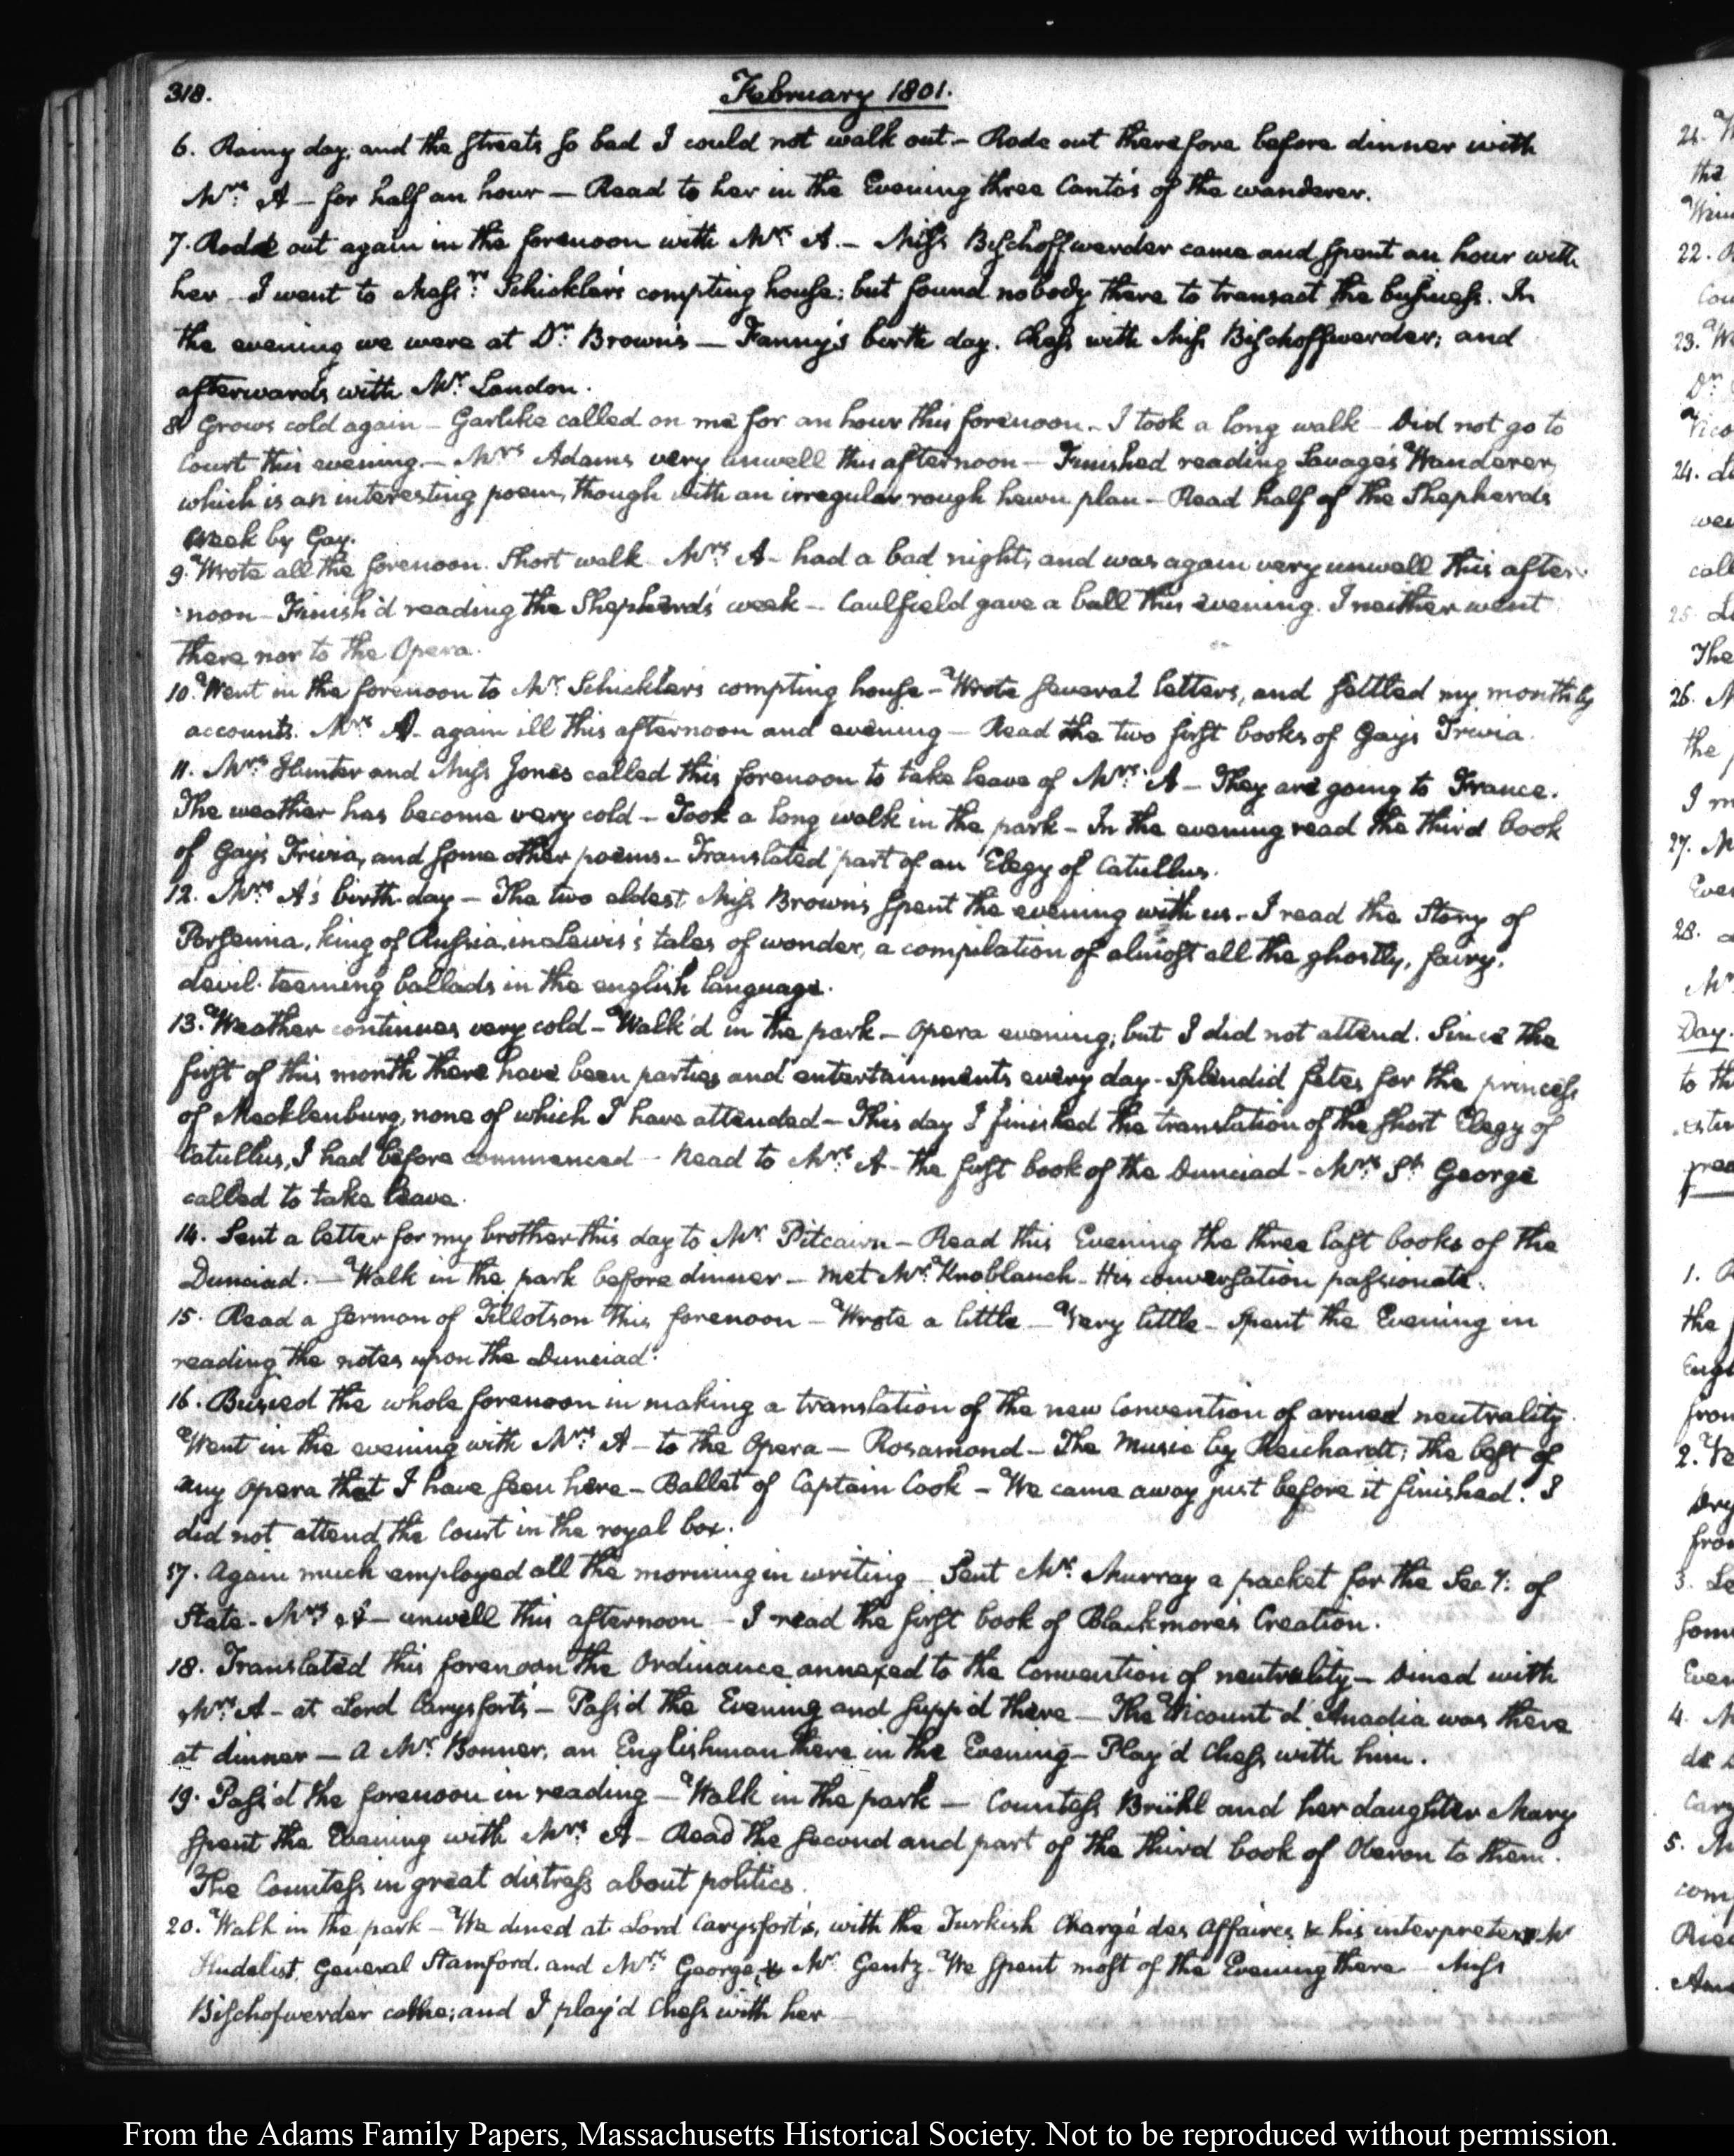 318.
February 1801.
6. Rainy day, and the streets so bad I could not walk out.— Rode out therefore before dinner with
Mrs: A— for half an hour — Read to her in the Evening three Canto's of the wanderer.
7. Rode out again in the forenoon with Mrs. A.— Miss Bischoffwerder came and spent an hour with
her. I went to Messrs: Schickler's compting house; but found nobody there to transact the business. In
the evening we were at Dr. Brown's — Fanny's birth day. Chess with Miss Bischoffwerder; and
afterwards with Mr. London.
8. Grows cold again — Garlike called on me for an hour this forenoon.— I took a long walk — Did not go to
Court this evening.— Mrs Adams very unwell this afternoon — Finished reading Savage's Wanderer,
which is an interesting poem, though with an irregular rough hewn plan — Read half of the Shepherds
Week by Gay.
9. Wrote all the forenoon. Short walk. Mrs: A— had a bad night, and was again very unwell this after-
noon — Finish'd reading the Shepherds' week — Caulfield gave a ball this evening. I neither went
there nor to the Opera.
10. Went in the forenoon to Mr. Schickler's compting house — Wrote several letters, and settled my monthly
accounts. Mrs A— again ill this afternoon and evening — Read the two first books of Gay's Trivia.
11. Mrs: Hunter and Miss Jones called this forenoon to take leave of Mrs: A — They are going to France.
The weather has become very cold — Took a long walk in the park — In the evening read the third book
of Gay's Trivia, and some other poems — Translated part of an Elegy of Catullus.
12. Mrs A's birth-day — The two eldest Miss Brown's spent the evening with us — I read the Story of
Porsenna, king of Russia, in Lewis's tales of wonder, a compilation of almost all the ghostly, fairy,
devil-teeming ballads in the english language.
13. Weather continues very cold — Walk'd in the park — Opera evening; but I did not attend. Since the
first of this month there have been parties and entertainments every day — Splendid fetes for the princess
of Mecklenburg, none of which I have attended — This day I finished the translation of the short Elegy of
Catullus, I had before commenced — Read to Mrs A— the first book of the Dunciad — Mrs: St. George
called to take leave.
14. Sent a letter for my brother this day to Mr. Pitcairn — Read this Evening the three last books of the
Dunciad. — Walk in the park before dinner — met Mr. Knoblauch. His conversation passionate.
15. Read a sermon of Tillotson this forenoon — Wrote a little — Very little — Spent the Evening in
reading the notes upon the Dunciad.
16. Busied the whole forenoon in making a translation of the new Convention of armed neutrality.
Went in the evening with Mrs: A— to the Opera — Rosamond — The Music by Reichardt; the best of
any Opera that I have seen here — Ballet of Captain Cook — We came away just before it finished. I
did not attend the Court in the royal box.
17. Again much employed all the morning in writing — Sent Mr. Murray a packet for the Secy: of
State — Mrs: A— unwell this afternoon — I read the first book of Blackmore's Creation.
18. Translated this forenoon the Ordinance annexed to the Convention of neutrality — Dined with
Mrs: A— at Lord Carysfort's — Pass'd the Evening and supp'd there — The Vicount d'Anadia was there
at dinner — A Mr. Bonner, an Englishman there in the Evening — Play'd Chess with him.
19. Pass'd the forenoon in reading — Walk in the park — Countess Brühl and her daughter Mary
spent the Evening with Mrs: A— Read the second and part of the third book of Oberon to them.
The Countess in great distress about politics.
20. Walk in the park — We dined at Lord Carysfort's, with the Turkish Chargé des Affaires & his interpreter, Mr
Hudelist, General Stamford, and Mrs: George, & Mr. Gentz. We spent most of the Evening there — Miss
Bischofwerder came; and I play'd Chess with her —
From the Adams Family Papers, Massachusetts Historical Society. Not to be reproduced without permission.